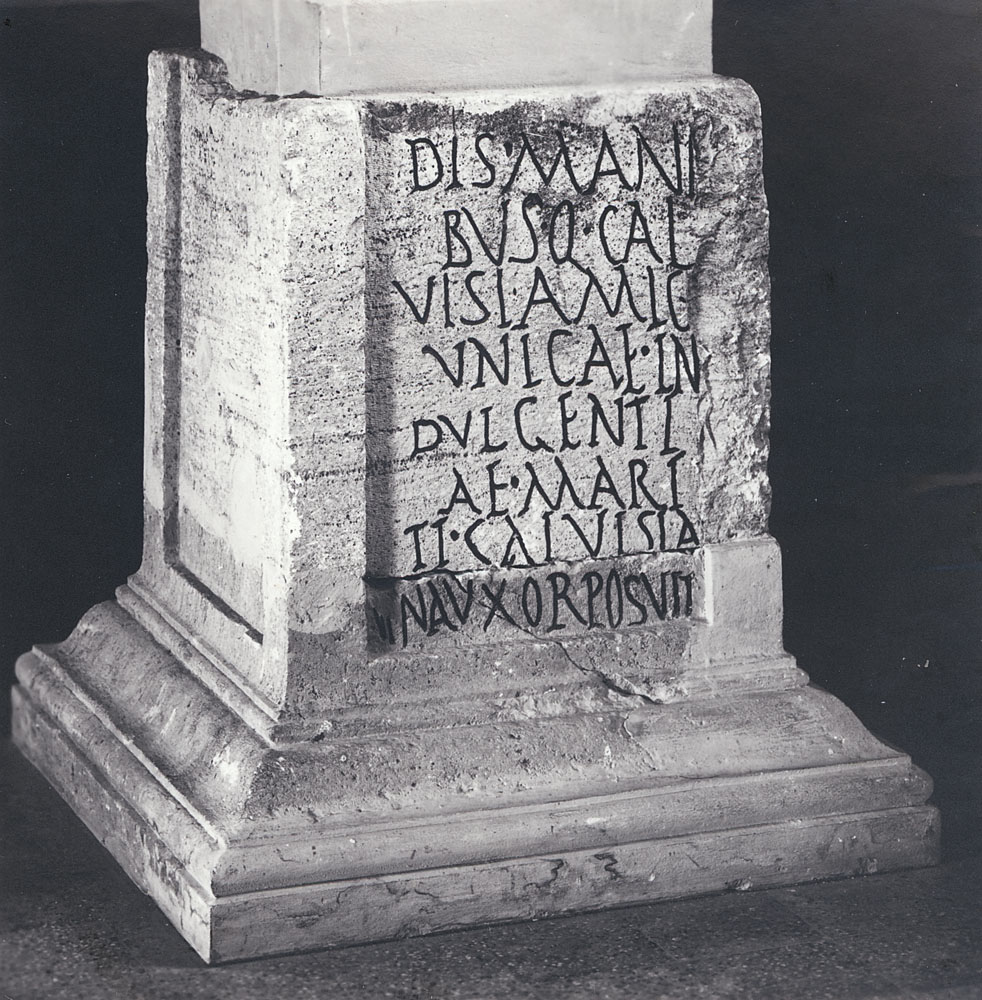 DIS·MANI
BUSQ·CAL
VISI·AMIC
VNICAE·IN
DVLGENTI
AE·MARI
TI·CALVISIA
NAVXORPOSVIT